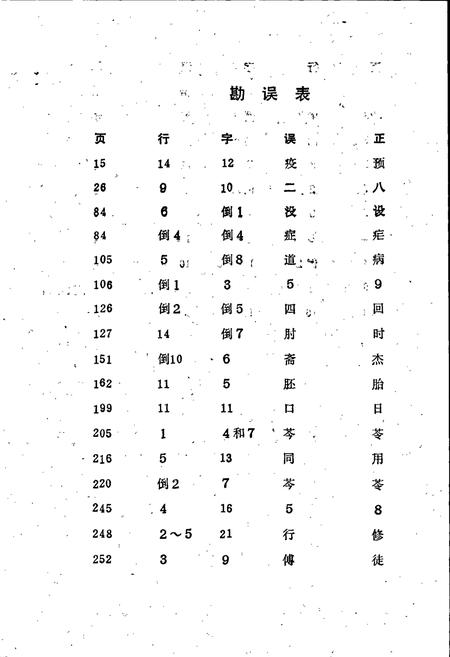 勘误表
页 行 字 误 正
15 14 12 疫 预
26 9 10 二 八
84 6 倒1 没 设
84 倒4 倒4 症 疟
105 5 倒8 道 病
106 倒1 3 5 9
126 倒2 倒5 四 回
127 14 倒7 肘 时
151 倒10 6 斋 杰
162 11 5 胚 胎
199 11 11 口 日
205 1 4和7 芩 苓
216 5 13 同 用
220 倒2 7 芩 苓
245 4 16 5 8
248 2～5 21 行 修
252 3 9 傅 徒